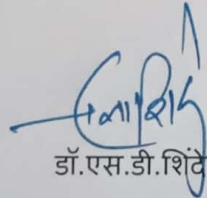 डॉ.एस.डी.शिंदे